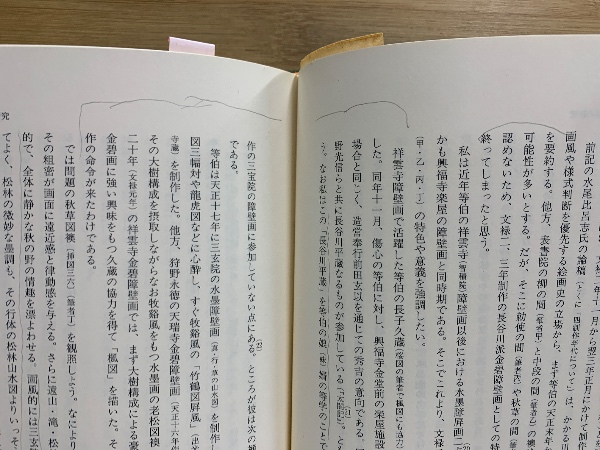 前記の水尾比呂志氏の論稿
画風や様式判断を優先する絵画史の立場から、まず等伯の天正末年か
を要約する。他方、表書院の柳の間（筆者甲）と中段の間
可能性が多いとする。だが、そこに勅使の間（筆者丙）や秋草の間
認めないため、文禄二、三年制作の長谷川派金碧障壁画としての特
終ってしまったと思う。
私は近年等伯の祥雲寺（智積院）障壁画以後における水墨障屛画
かも興福寺楽屋の障壁画と同時期である。そこでこれより、文禄
（甲・乙・丙・丁）の特色や意義を強調したい。
祥雲寺障壁画で活躍した等伯の長子久蔵（桜図の筆者で楓図にも協力）
した。同年十一月、傷心の等伯に対し、興福寺金堂前の楽屋施設
場合と同じく、造営奉行前田玄以を通じての秀吉の意向である。
野光信らと共に長谷川平蔵なるものが参加している
う。なお私はこの「長谷川平蔵」を等伯の娘
作の三宝院の障壁画に参加していない点にある。ところが彼は次の
である。
等伯は天正十七年に三玄院の水墨障壁画（真・行・草の山水図）を制作し
図三幅対や龍虎図などに心酔し、すぐ牧谿風の「竹鶴図屛風」
寺蔵）を制作した。他方、狩野永徳の天瑞寺金碧障壁画（天正十六年
その大樹構成を摂取しながらなお牧谿風をもつ水墨画の老松図襖
二十年（文禄元年）の祥雲寺金碧障壁画では、まず大樹構成による豪
金碧画に強い興味をもつ久蔵の協力を得て「楓図」を描いた。そ
作の命令が来たわけである。
では問題の秋草図襖（挿図三六）（筆者丁）を観照しよう。なにより
その粗密が画面に遠近感と律動感を与える。さらに遠山、滝、松
的で、全体に静かな秋の野の情趣を漂よわせる。画風的には三玄
てよく、松林の微妙な墨調も、その行体の松林山水図よりいっそ
究